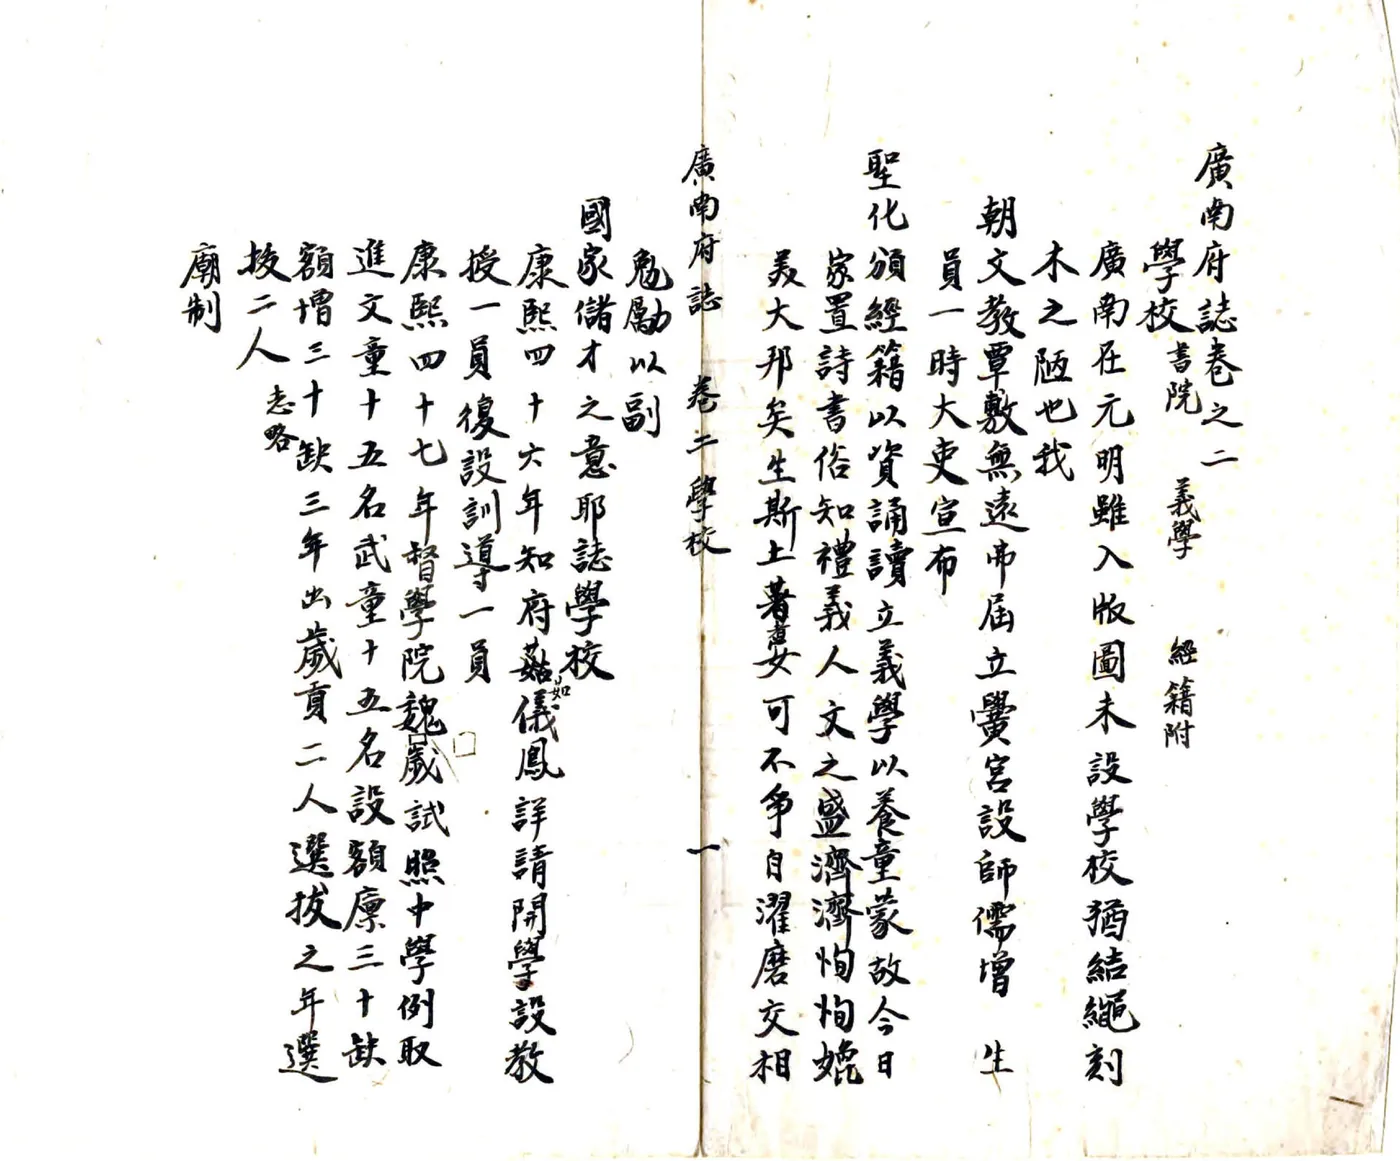 廣南府誌卷之二
學校 書院 義學 經籍附
廣南在元明雖入版圖未設學校猶結繩刻
木之陋也我
朝文教覃敷無遠弗屆立黌宮設師儒增生
員一時大吏宣布
聖化頒經籍以資誦讀立義學以養童蒙故今日
家置詩書俗知禮義人文之盛濟濟恂恂媲
美大邦矣生斯土著者女可不爭自濯磨交相
廣南府誌 卷二 學校 一
勉勵以副
國家儲才之意耶誌學校
康熙四十六年知府茹儀鳳詳請開學設教
授一員復設訓導一員
康熙四十七年督學院魏歲試照中學例取
進文童十五名武童十五名設額廪三十缺
額增三十缺三年出歲貢二人選拔之年選
拔二人 志略
廟制